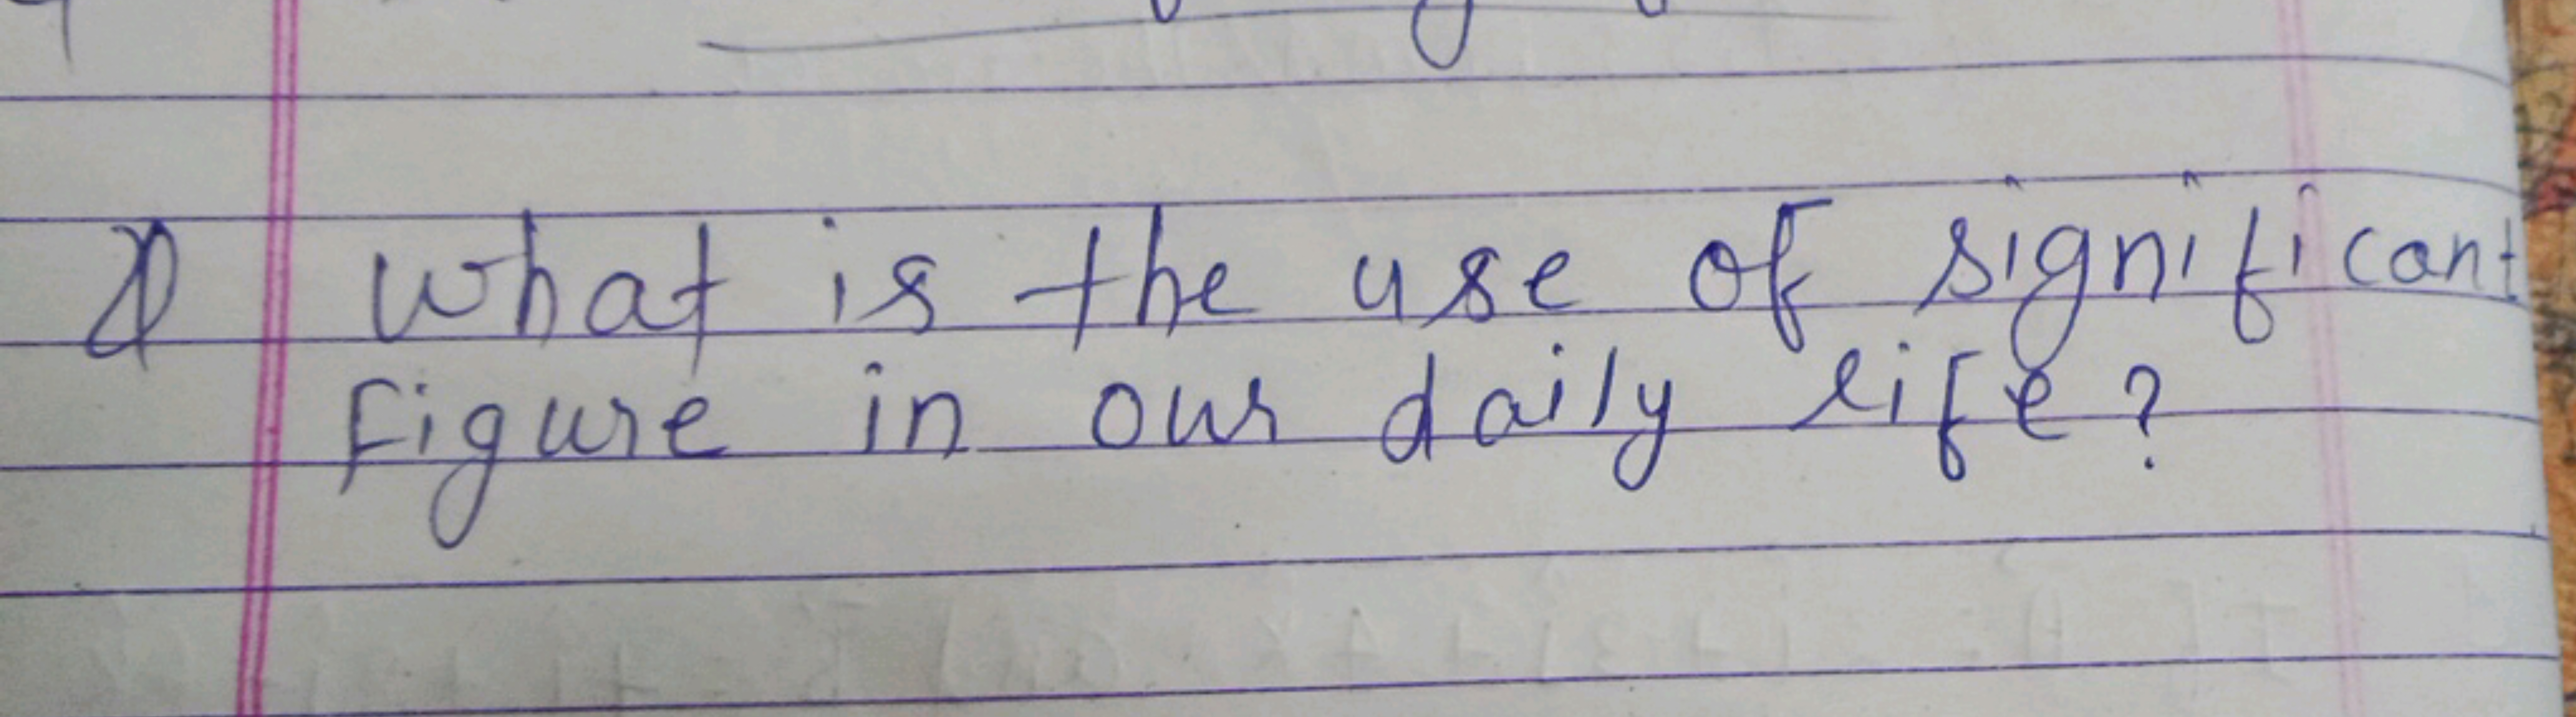 What is the use of significant
figure in our daily life?